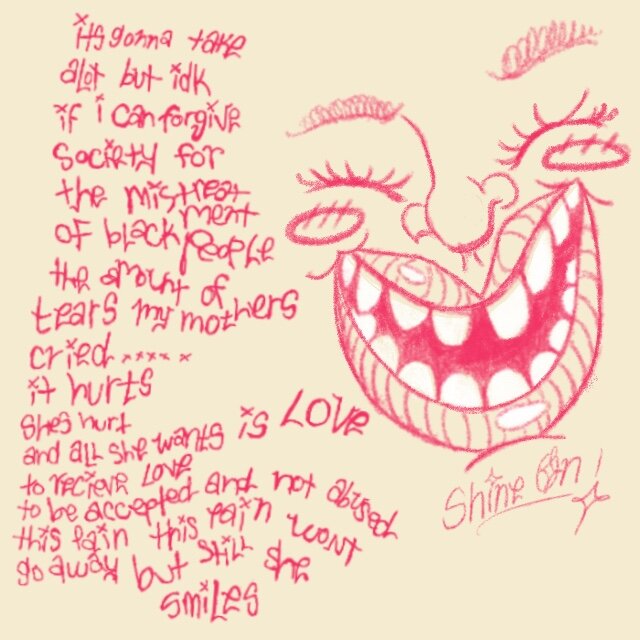 its gonna take
alot but idk
if i can forgive
society for
the mistreat
ment
of black people
the amount of
tears my mothers
cried.....
it hurts
shes hurt
and all she wants is LOVE
to recieve LOVE
to be accepted and not abused
this pain this pain wont
go away but still she
smiles
Shine On!